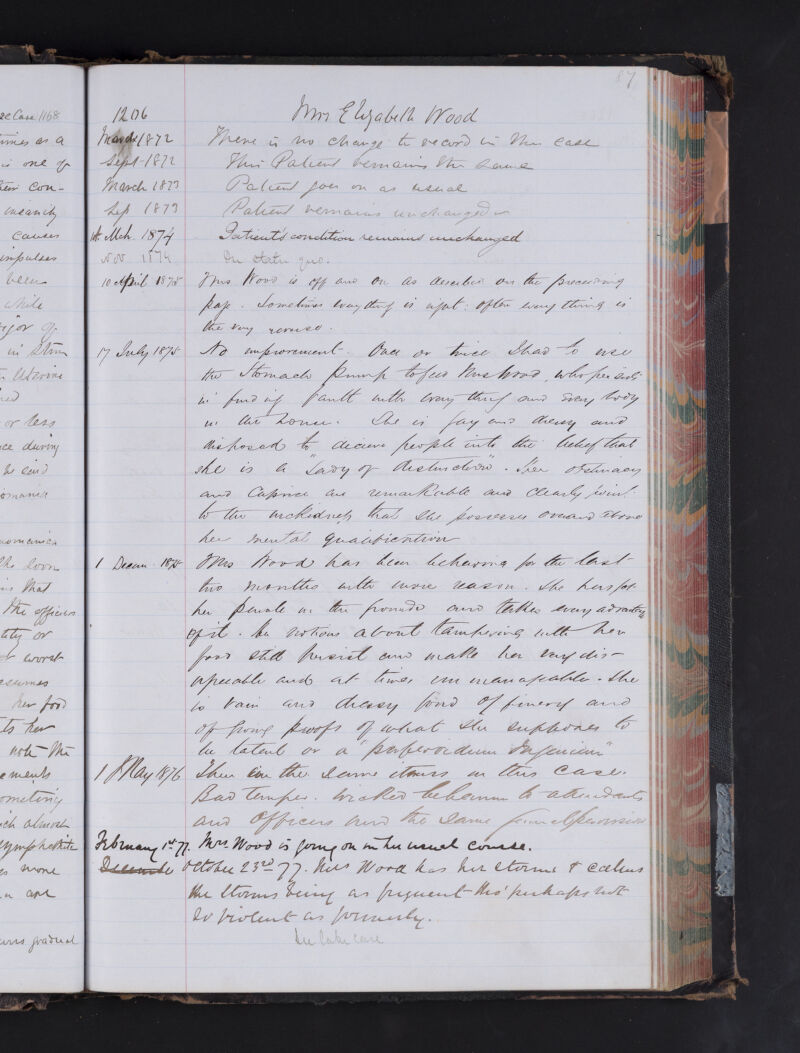 87
1206 Mrs Elizabeth Wood
March 1872 There is no change to record in this case
Sept 1872 This Patient remains the same
March 1873 Patient goes on as usual
Sep 1873 Patient remains unchanged
Mch. 1874 Patient's condition remains unchanged
Nov 1874 In statu quo.
10 April 1875 Mrs Wood is off and on as described on the preceding
page. Sometimes everything is right: often every thing is
the very reverse.
17 July 1875 No improvement. Once or twice I had to use
the Stomach Pump to feed Mrs Wood, who persists
in finding fault with every thing and every body
in the house. She is gay and dressy and
disposed to deceive people into the belief that
she is a "Lady of distinction". Her obstinacy
and Caprice are remarkable and clearly point
to the wickedness that she possesses over and above
her mental qualification
1 Decem. 1875 Mrs Wood has been behaving for the last
two months with more reason. She has got
her parole in the grounds and takes every advantage
of it. Her notions about tampering with her
food still persist and make her very dis-
agreeable and at times unmanageable. She
is vain and dressy fond of finery and
of giving proofs of what she supposes to
be talent or a "perfervidum Ingenium"
1 May 1876 There is the same in this case.
Bad temper. Wicked behavior to attendants
and Officers and the same
February 1st 77. Mrs Wood is going on in her usual course.
December October 23rd 77. Mrs Wood has her storms & calms
the storms being as frequent tho' perhaps not
so violent as formerly.
See later case
see Case 1168
times as a
is one of
their con-
insanity
causes
impulses
been
while
in
or less
during
he said
the doors
is that
the officers
or
worst
her food
its her
note the
something
almost
more
are
gradual